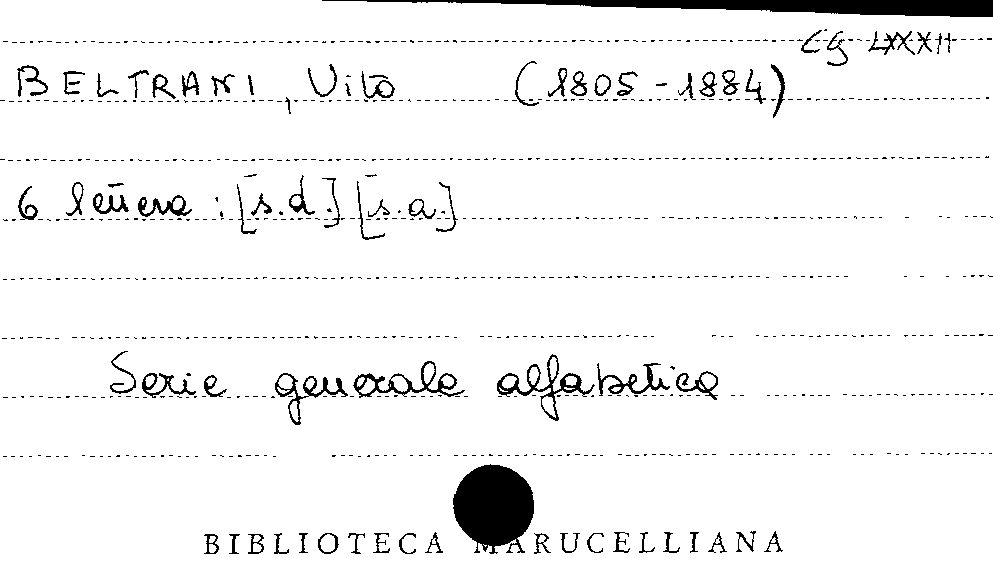 CG LXXXII
BELTRANI, Vito (1805-1884)
6 lettera: [s.d.] [s.a.]
Serie generale alfabetica
BIBLIOTECA MARUCELLIANA